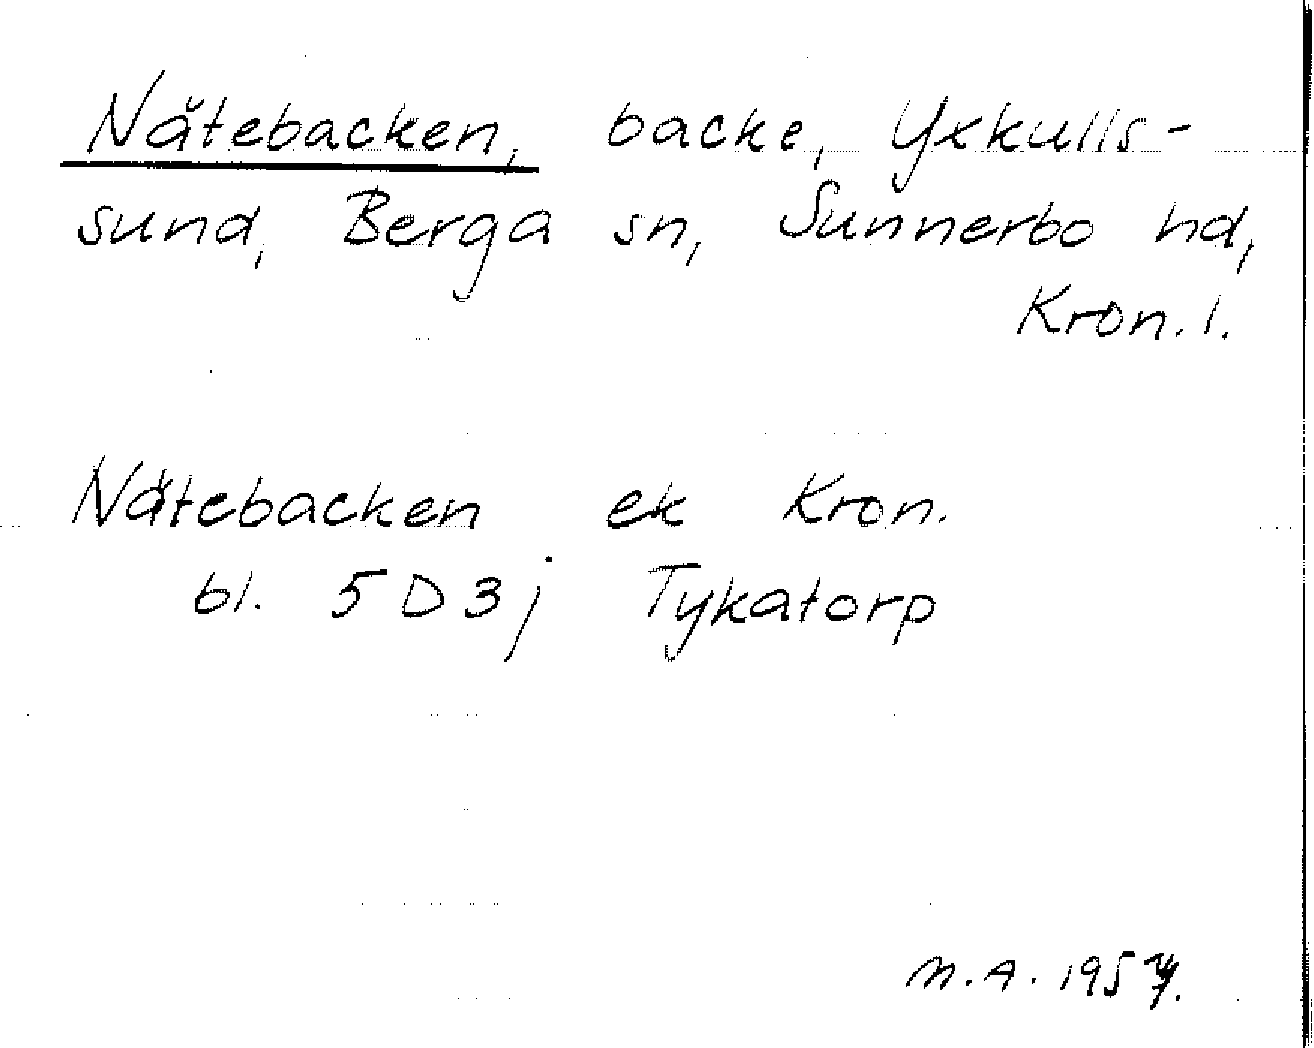 Nätebacken, backe, Yxkulls-
sund, Berga sn, Sunnerbo hd,
Kron. l.
Nätebacken ek Kron.
bl. 5D3j Tykatorp
N.A.